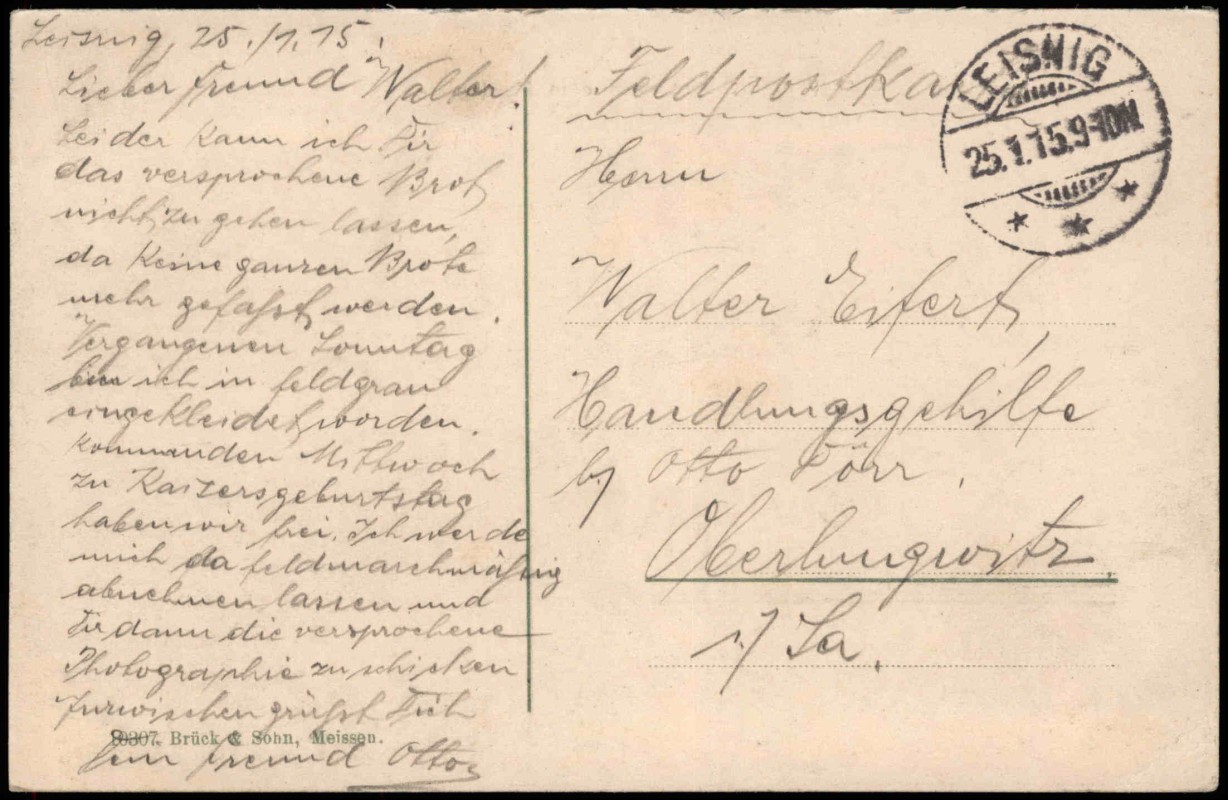 Leisnig, 25./1.15.
Lieber Freund Walter!
Leider kann ich Dir
das versprochene Brot
nicht zu gehen lassen,
da keine ganzen Brote
mehr gefaßt werden.
Vergangenen Sonntag
bin ich in feldgrau
eingekleidet worden.
Kommanden Mittwoch
zu Kaisersgeburtstag
haben wir frei. Ich werde
mich da feldmarschmäßig
abnehmen lassen und
Dir dann die versprochene
Photographie zu schicken
Inzwischen grüßt Dich
Dein Freund Otto
80307. Brück & Sohn, Meissen.
Feldpostka
LEISNIG
25.1.15.9-10N.
Herrn
Walter Eifert,
Handlungsgehilfe
b/ Otto Dörr.
Oberlungwitz
i/ Sa.